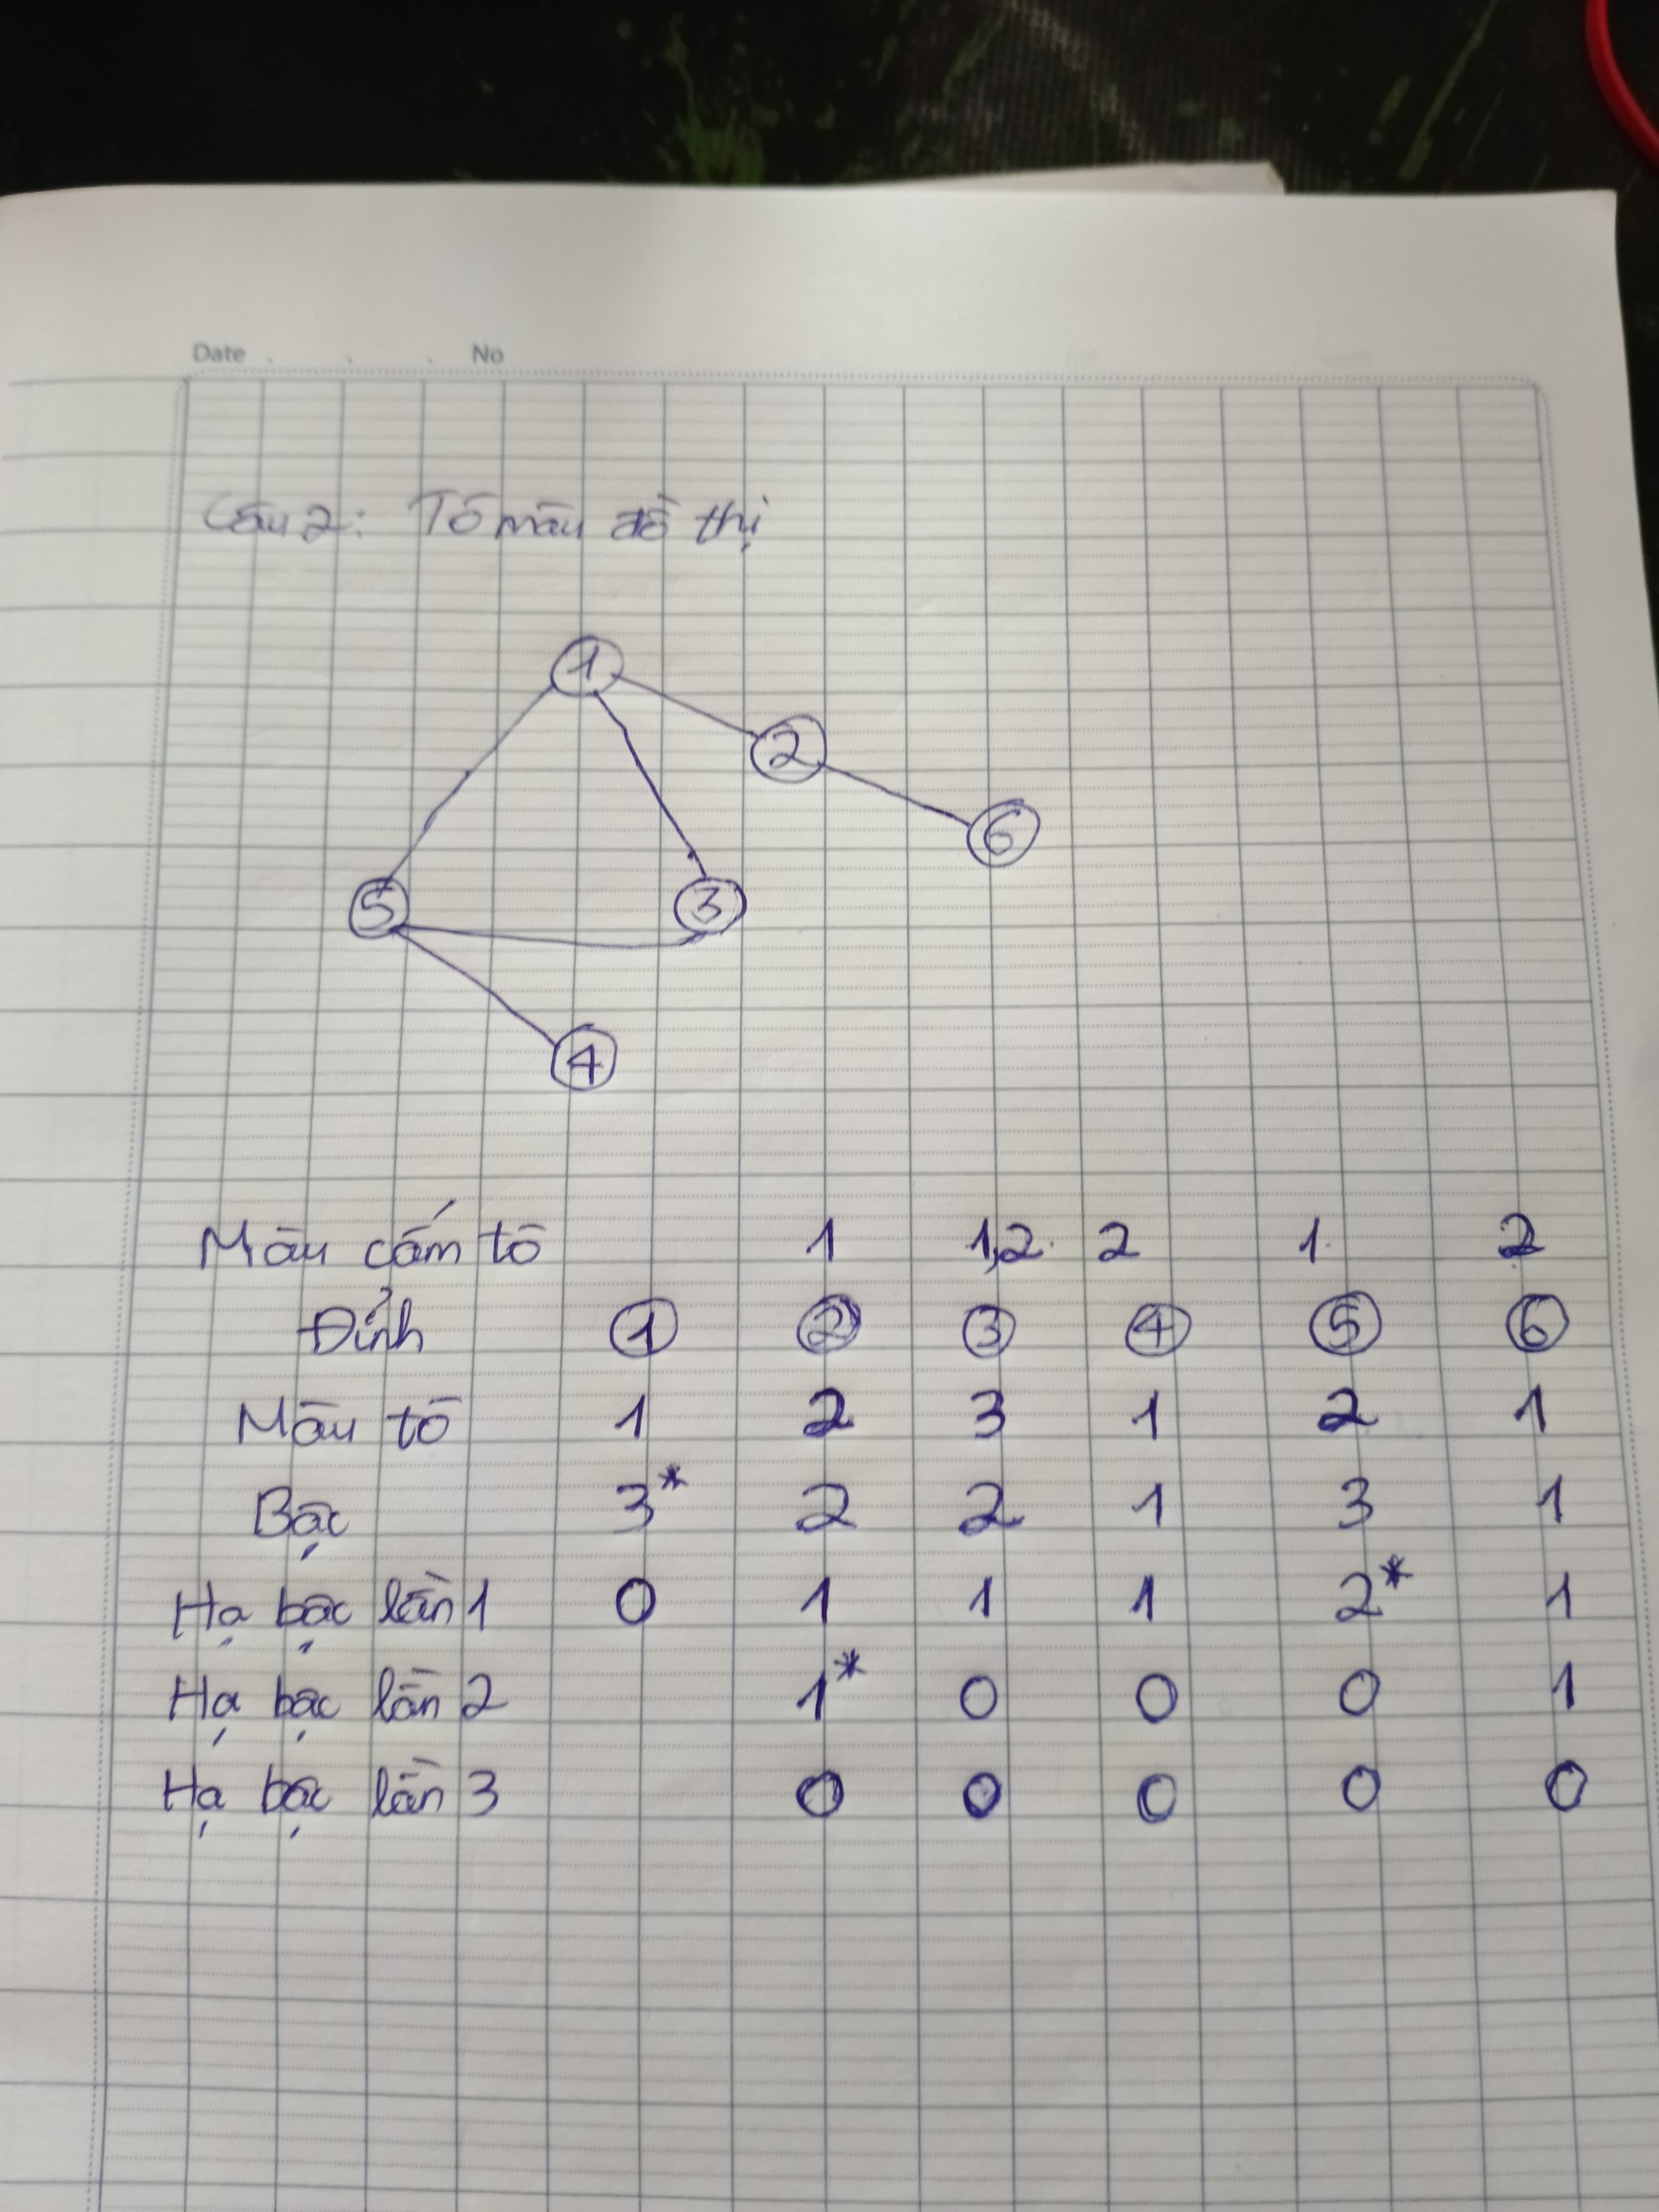 Date . . . No
Câu 2: Tô màu đồ thị
1
2
6
5
3
4
Màu cấm tô 1 1,2 2 1 2
Đỉnh 1 2 3 4 5 6
Màu tô 1 2 3 1 2 1
Bậc 3* 2 2 1 3 1
Hạ bậc lần 1 0 1 1 1 2* 1
Hạ bậc lần 2 1* 0 0 0 1
Hạ bậc lần 3 0 0 0 0 0